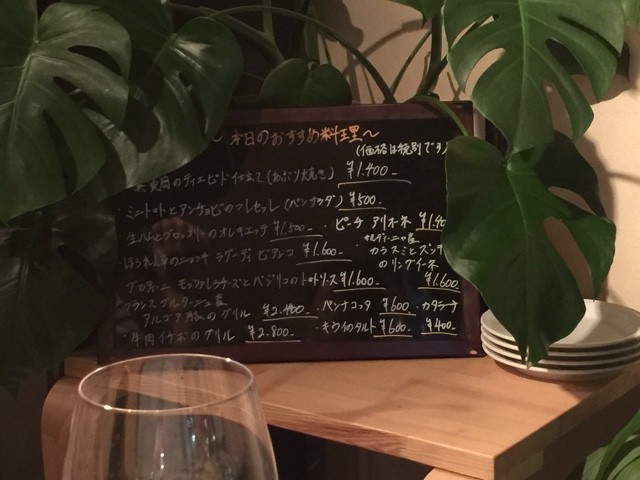 ～本日のおすすめ料理～
(価格は税別です)
のティエピド仕立て(あぶり焼き) ¥1.400-
・ミニトマトとアンチョビのフレーゼレ(パンサラダ) ¥500-
生ハムとブロッコリーのオレキエッテ ¥1.500- ・ピーチ アリオネ
ほうれん草のニョッキ ラグーディ ビアンコ ¥1.600- サルディーニャ産
カラスミとズッキ
のリングイネ ¥1.600
モッツァレラチーズとバジリコのトマトソース ¥1.600-
フランス ブルターニュ産
のグリル ¥2.400- ・パンナコッタ ¥600 ・カタラーナ
・牛肉イチボのグリル ¥2.800- ・キウイのタルト ¥600- ¥400-